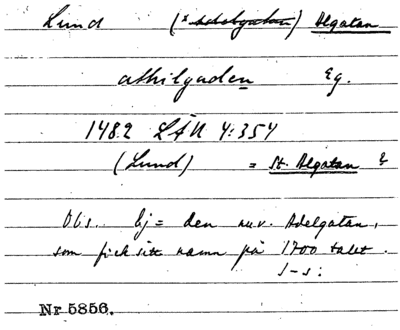 Lund (x Adelgatan) Algatan
athilgaden Eg.
1482 LÄU 4:354
(Lund) = St. Algatan &
Obs. Ej = den nuv. Adelgatan,
som fick sitt namn på 1700 talet.
J-s:
Nr 5856.